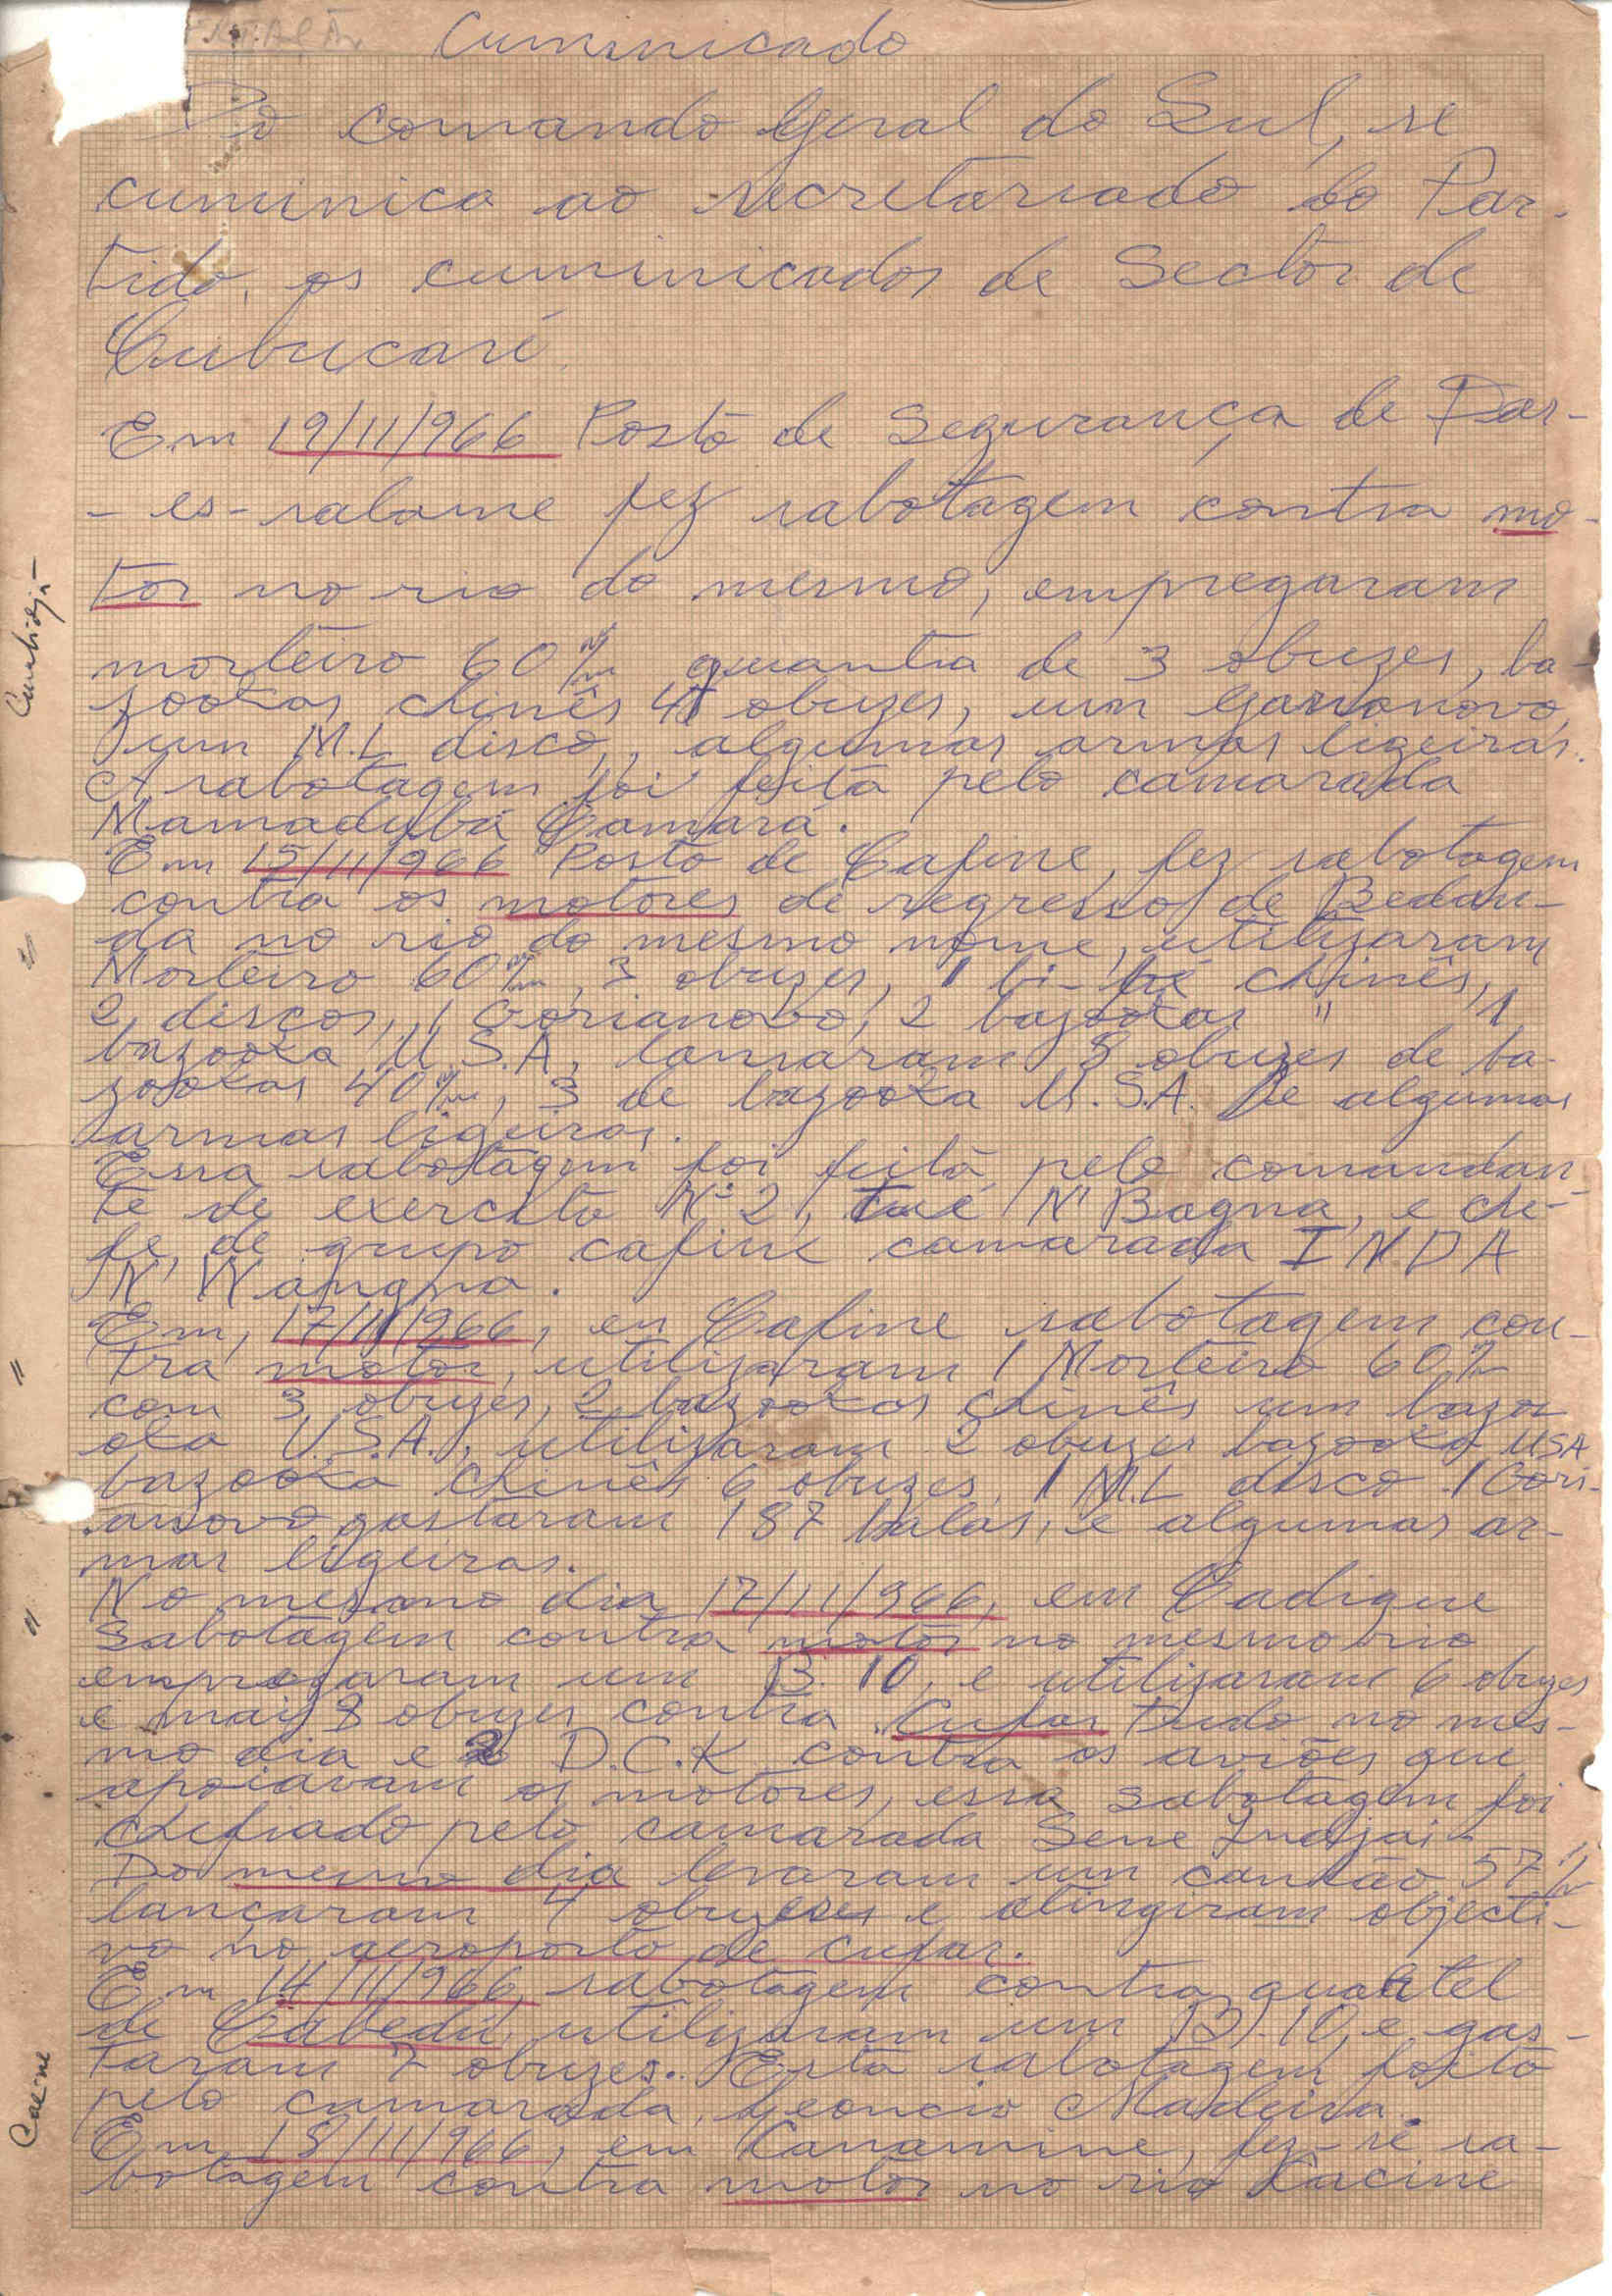 Cuminicado
Do comando Geral do Sul, se
cuminica ao secretariado do Par-
tido, os cuminicados de Sector de
Cubucaré.
Em 19/11/966 Posto de Segurança de Dar-
- es-salame fez sabotagem contra mo-
tor no rio do mesmo, empregaram
morteiro 60 m/m quantia de 3 obuzes, ba-
zookas chinês 4 obuzes, um Garianovo,
um M.L disco, algumas armas ligeiras.
A sabotagem foi feita pelo camarada
Mamadubá Camará.
Em 15/11/966 Posto de Cafine, fez sabotagem
contra os motores de regresso de Bedan-
da no rio do mesmo nome, utilizaram
Morteiro 60 m/m, 3 obuzes, 1 bi-bé chinês,
2 discos, 1 Gorianovo, 2 bazookas " 1
bazooka U.S.A, lansaram 8 obuzes de ba-
zookas 40 m/m, 3 de bazooka U.S.A. e algumas
armas ligeiras.
Essa sabotagem foi feita pelo comandan-
te de exercito Nº 2, tué N' Bagna, e che-
fe de grupo cafine camarada INDA
N' Wangna.
Em, 17/11/966, en Cafine sabotagem con-
tra motor, utilizaram 1 Morteiro 60 %
com 3 obuzes, 2 bazookas chinês um bazo
oka U.S.A., utilizaram 2 obuzes bazooka USA
bazooka chinês 6 obuzes, 1 M.L disco 1 Gori-
anovo gastaram 187 balas, e algumas ar-
mas ligeiras.
No mesmo dia 17/11/966, em Cadique
Sabotagem contra motor no mesmo rio
empregaram um B. 10, e utilizaram 6 obuzes
e mais 8 obuzes contra Cufar tudo no mes-
mo dia e 2 D.C.K contra os aviões que
apoiavam os motores, essa sabotagem foi
chefiado pelo camarada Sene Indjai-
Do mesmo dia levaram um canhão 57 m/m
lançaram 4 obuzes e atingiram objecti-
vo no aeroporto de cufar.
Em 14/11/966, sabotagem contra quartel
de Cabedú utilizaram um B. 10, e gas-
taram 7 obuzes. Esta sabotagem foito
pelo camarada, Leoncio Madeira.
Em 18/11/966, em Canamine, fez-se sa-
botagem contra motor no rio Cacine
Cacine